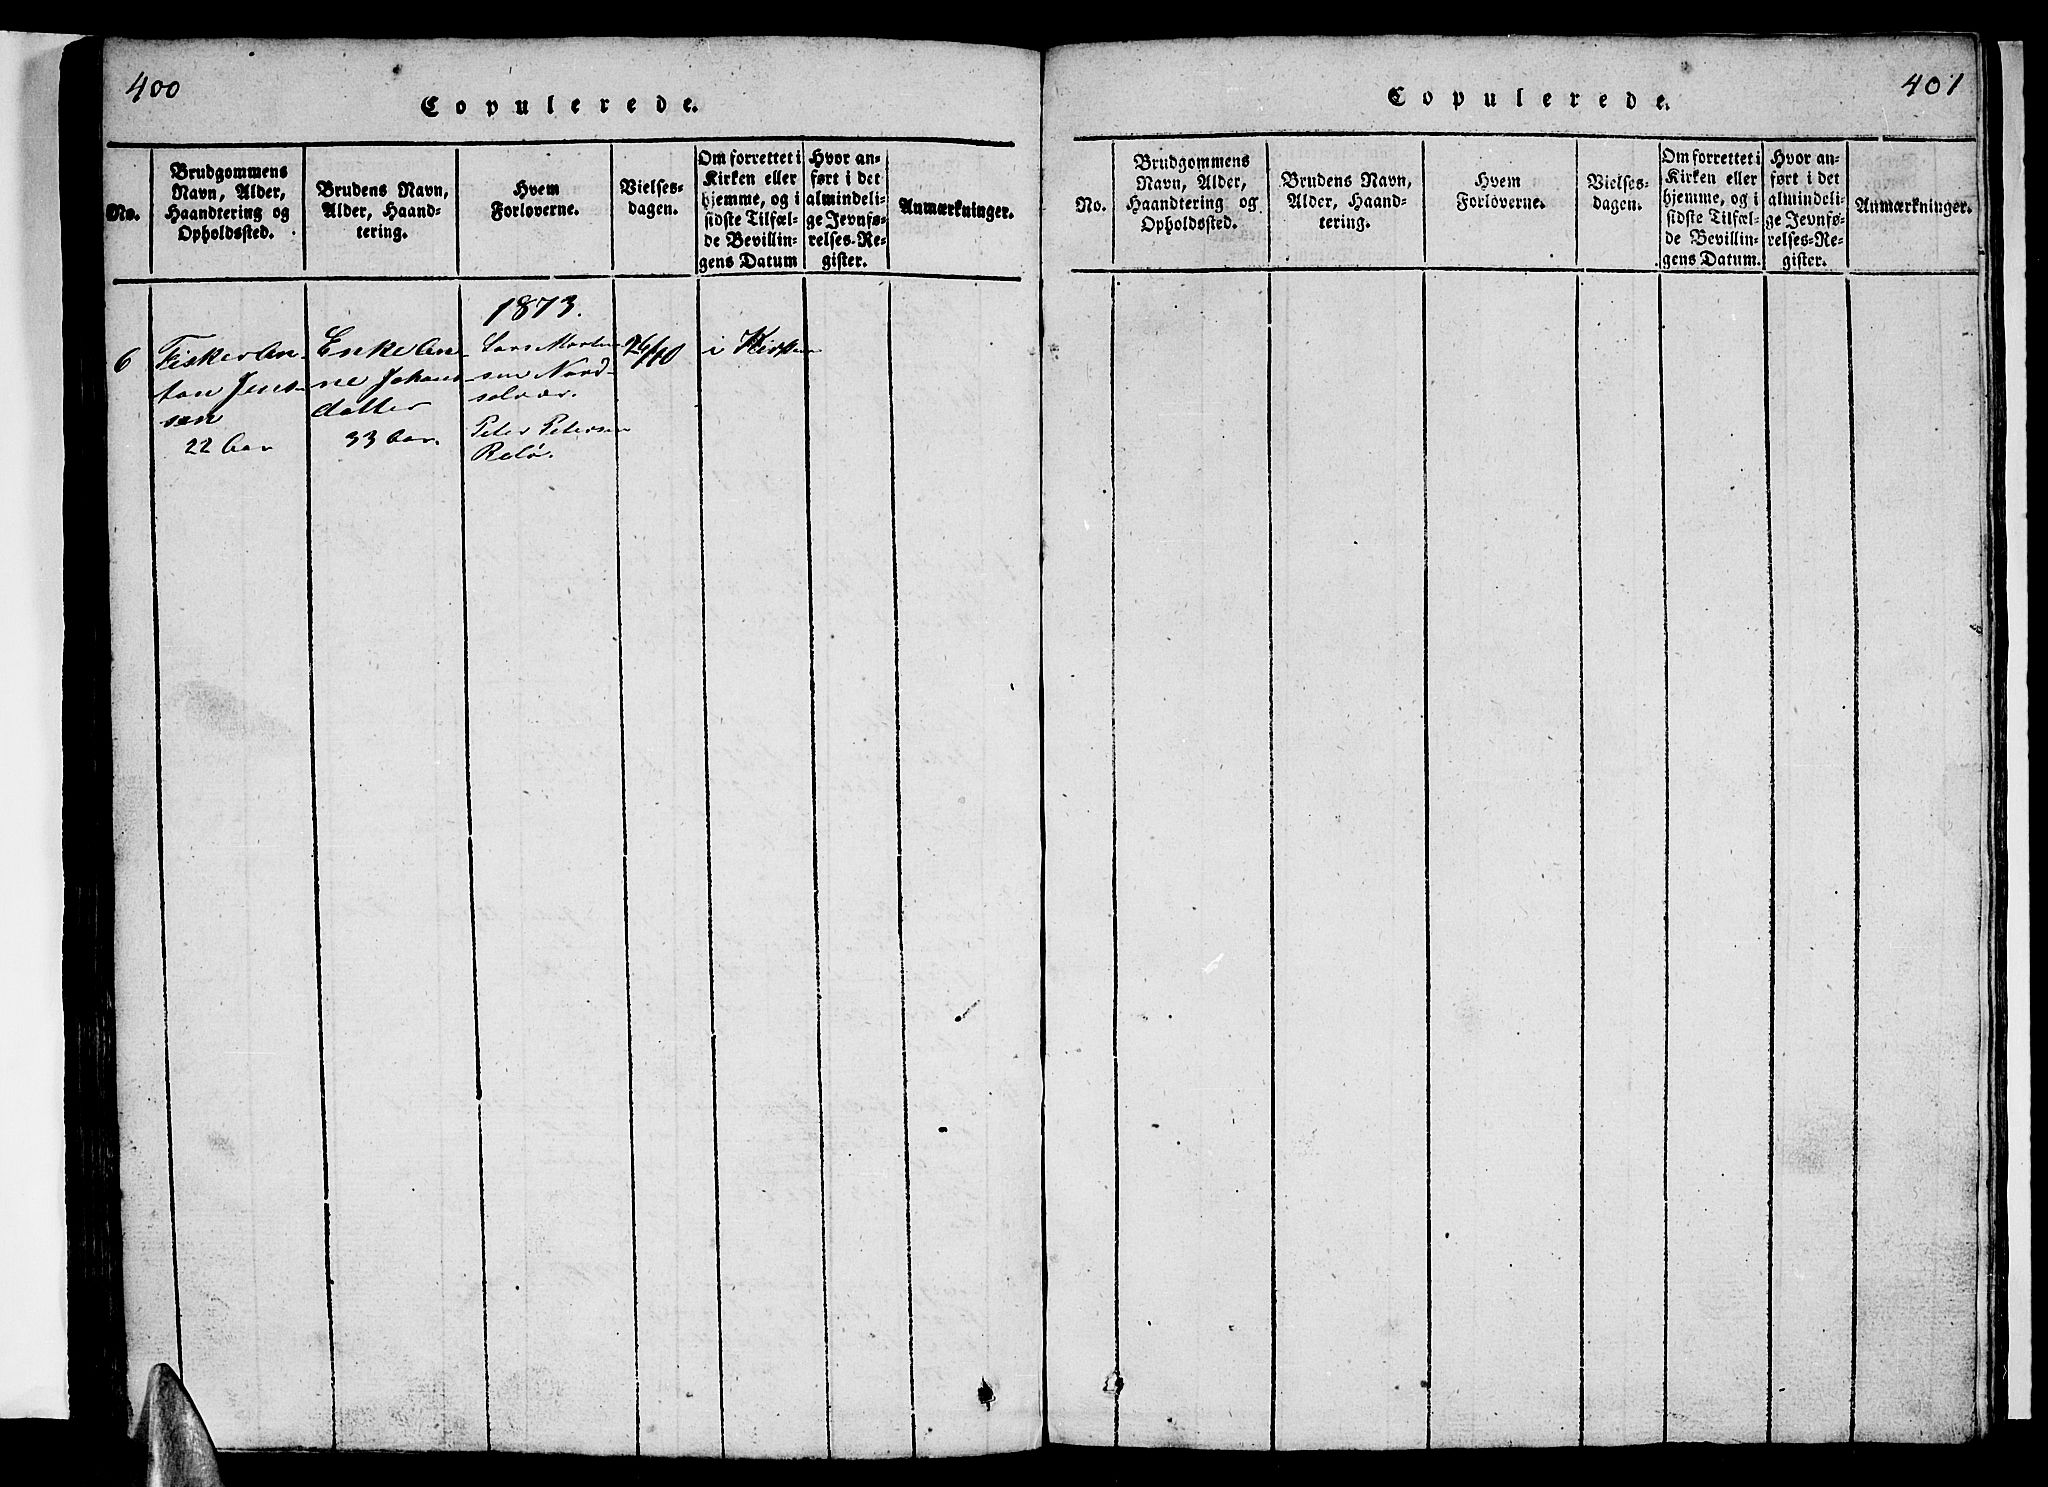 400
Copulerede.
No.
Brudgommens
Navn, Alder,
Haandtering og
Opholdssted.
Brudens Navn,
Alder, Haand-
tering.
Hvem
Forloverne.
Vielses-
dagen.
Om forrettet i
Kirken eller
hjemme, og i
sidste Tilfæl-
de Bevillin-
gens Datum
Hvor an-
ført i det
almindeli-
ge Jevnfø-
relses-Re-
gister.
Anmærkninger.
1873.
6
Fisker An-
ton Jens-
sen
22 Aar
Enke An-
ne Johans
datter
33 Aar.
Lars Morten-
sen Nord-
solvær.
Peter Petersen
Relø.
26/10
i Kirken
401
Copulerede.
No.
Brudgommens
Navn, Alder,
Haandtering og
Opholdssted.
Brudens Navn,
Alder, Haand-
tering.
Hvem
Forloverne.
Vielses-
dagen.
Om forrettet i
Kirken eller
hjemme, og i
sidste Tilfæl-
de Bevillin-
gens Datum.
Hvor an-
ført i det
almindeli-
ge Jevnfø-
relses-Re-
gister.
Anmærkninger.